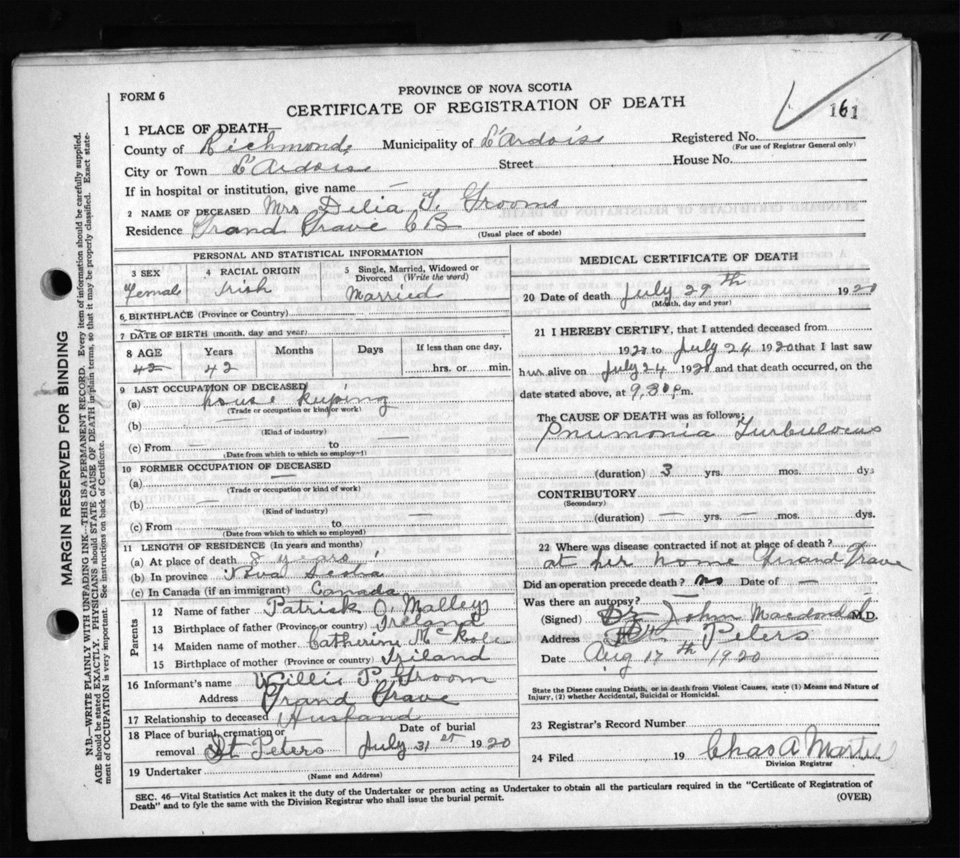 PROVINCE OF NOVA SCOTIA
FORM 6
CERTIFICATE OF REGISTRATION OF DEATH
161
1 PLACE OF DEATH—
County of Richmond Municipality of L'Ardois Registered No.
(For use of Registrar General only)
City or Town L'Ardois Street House No.
If in hospital or institution, give name —
2 NAME OF DECEASED Mrs Delia T. Grooms
Residence Grand Grave C B (Usual place of abode)
PERSONAL AND STATISTICAL INFORMATION
3 SEX Female
4 RACIAL ORIGIN Irish
5 Single, Married, Widowed or Divorced (Write the word) Married
6 BIRTHPLACE (Province or Country)
7 DATE OF BIRTH (month, day and year)
8 AGE Years Months Days If less than one day,
42 42 hrs. or min.
9 LAST OCCUPATION OF DECEASED
(a) house keeping
(Trade or occupation or kind or work)
(b) —
(Kind of industry)
(c) From — to —
(Date from which to which so employ-)
10 FORMER OCCUPATION OF DECEASED
(a) —
(Trade or occupation or kind of work)
(b) —
(Kind of industry)
(c) From — to —
(Date from which to which employed)
11 LENGTH OF RESIDENCE (In years and months)
(a) At place of death years
(b) In province Nova Scotia
(c) In Canada (if an immigrant) Canada
Parents
12 Name of father Patrick O. Malley
13 Birthplace of father (Province or country) Ireland
14 Maiden name of mother Catherine
15 Birthplace of mother (Province or country) Iriland
16 Informant's name Willis P. Groom
Address Grand Grave
17 Relationship to deceased Husband
18 Place of burial, cremation or removal St Peters
Date of burial July 31st 1920
19 Undertaker
(Name and Address)
MEDICAL CERTIFICATE OF DEATH
20 Date of death July 29th 1920
(Month, day and year)
21 I HEREBY CERTIFY, that I attended deceased from
1920 to July 24 1920 that I last saw
her alive on July 24 1920 and that death occurred, on the
date stated above, at 9.30 p.m.
The CAUSE OF DEATH was as follows:
Pnumonia Turbulocus
(duration) 3 yrs. mos. dys
CONTRIBUTORY
(Secondary)
(duration) — yrs. — mos. dys.
22 Where was disease contracted if not at place of death?
at her home Grand Grave
Did an operation precede death? no Date of —
Was there an autopsy?
(Signed) Dr John Macdonald M.D.
Address St Peters
Date Aug 17th 1920
State the Disease causing Death, or in death from Violent Causes, state (1) Means and Nature of
Injury, (2) whether Accidental, Suicidal or Homicidal.
23 Registrar's Record Number
24 Filed 19 Chas A Martel
Division Registrar
SEC. 46—Vital Statistics Act makes it the duty of the Undertaker or person acting as Undertaker to obtain all the particulars required in the "Certificate of Registration of
Death" and to fyle the same with the Division Registrar who shall issue the burial permit.
(OVER)
MARGIN RESERVED FOR BINDING
N.B.—WRITE PLAINLY WITH UNFADING INK—THIS IS A PERMANENT RECORD. Every item of information should be carefully supplied.
AGE should be stated EXACTLY. PHYSICIANS should STATE CAUSE OF DEATH in plain terms, so that it may be properly classified. Exact state-
ment of OCCUPATION is very important. See instructions on back of Certificate.